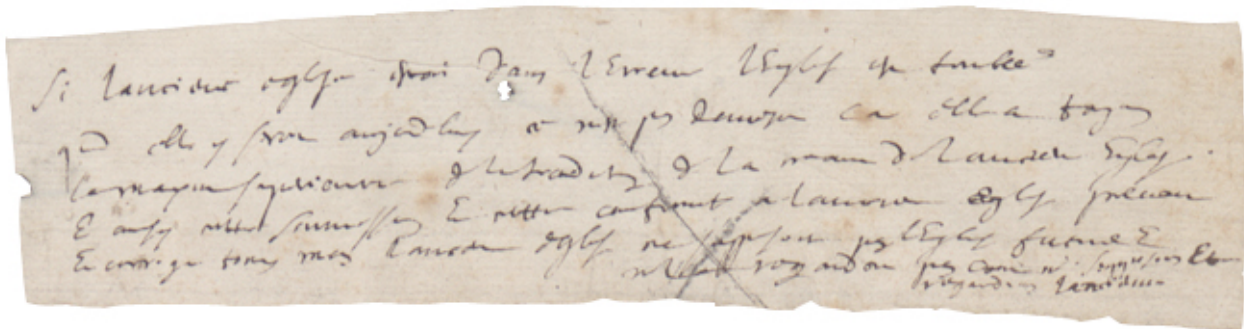 Si lancienne eglise estoit dans lErreur lEglise est tombée
qd elle y seroit aujourdhuy ce nest pas de mesme car elle a toujours
la maxime superieure de la tradition de la main de lancienne Eglise.
E ainsy cette soumission E cette conformité a lancienne eglise prevaut
E corrige tout mais lancienne eglise ne supposoit pas lEglise future E
ne la regardoit pas comme ns supposons Et
regardons lancienne